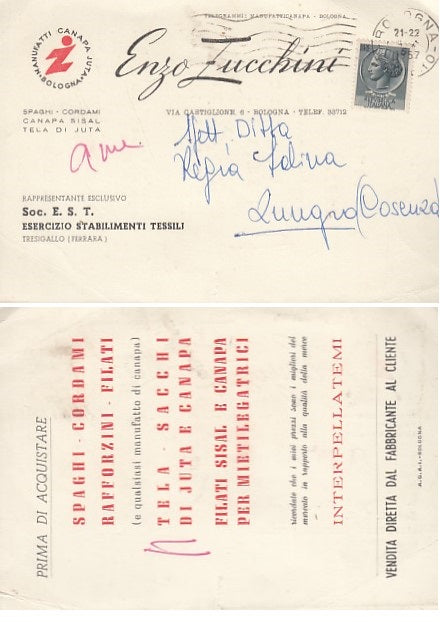 TELEGRAMMI: MANUFATTICANAPA - BOLOGNA
MANUFATTI CANAPA JUTA
BOLOGNA
Enzo Zucchini
BOLOGNA
21-22
SPAGHI - CORDAMI
CANAPA SISAL
TELA DI JUTA
VIA CASTIGLIONE 6 - BOLOGNA - TELEF. 33712
Spett. Ditta
Regia Salina
Lungro (Cosenza)
RAPPRESENTANTE ESCLUSIVO
Soc. E. S. T.
ESERCIZIO STABILIMENTI TESSILI
TRESIGALLO (FERRARA)
PRIMA DI ACQUISTARE
SPAGHI - CORDAMI
RAFFORZINI - FILATI
(e qualsiasi manufatto di canapa)
TELA - SACCHI
DI JUTA E CANAPA
FILATI SISAL E CANAPA
PER MIETILEGATRICI
ricordate che i miei prezzi sono i migliori del
mercato in rapporto alla qualità della merce
INTERPELLATEMI
VENDITA DIRETTA DAL FABBRICANTE AL CLIENTE
A.G.A.I. - BOLOGNA